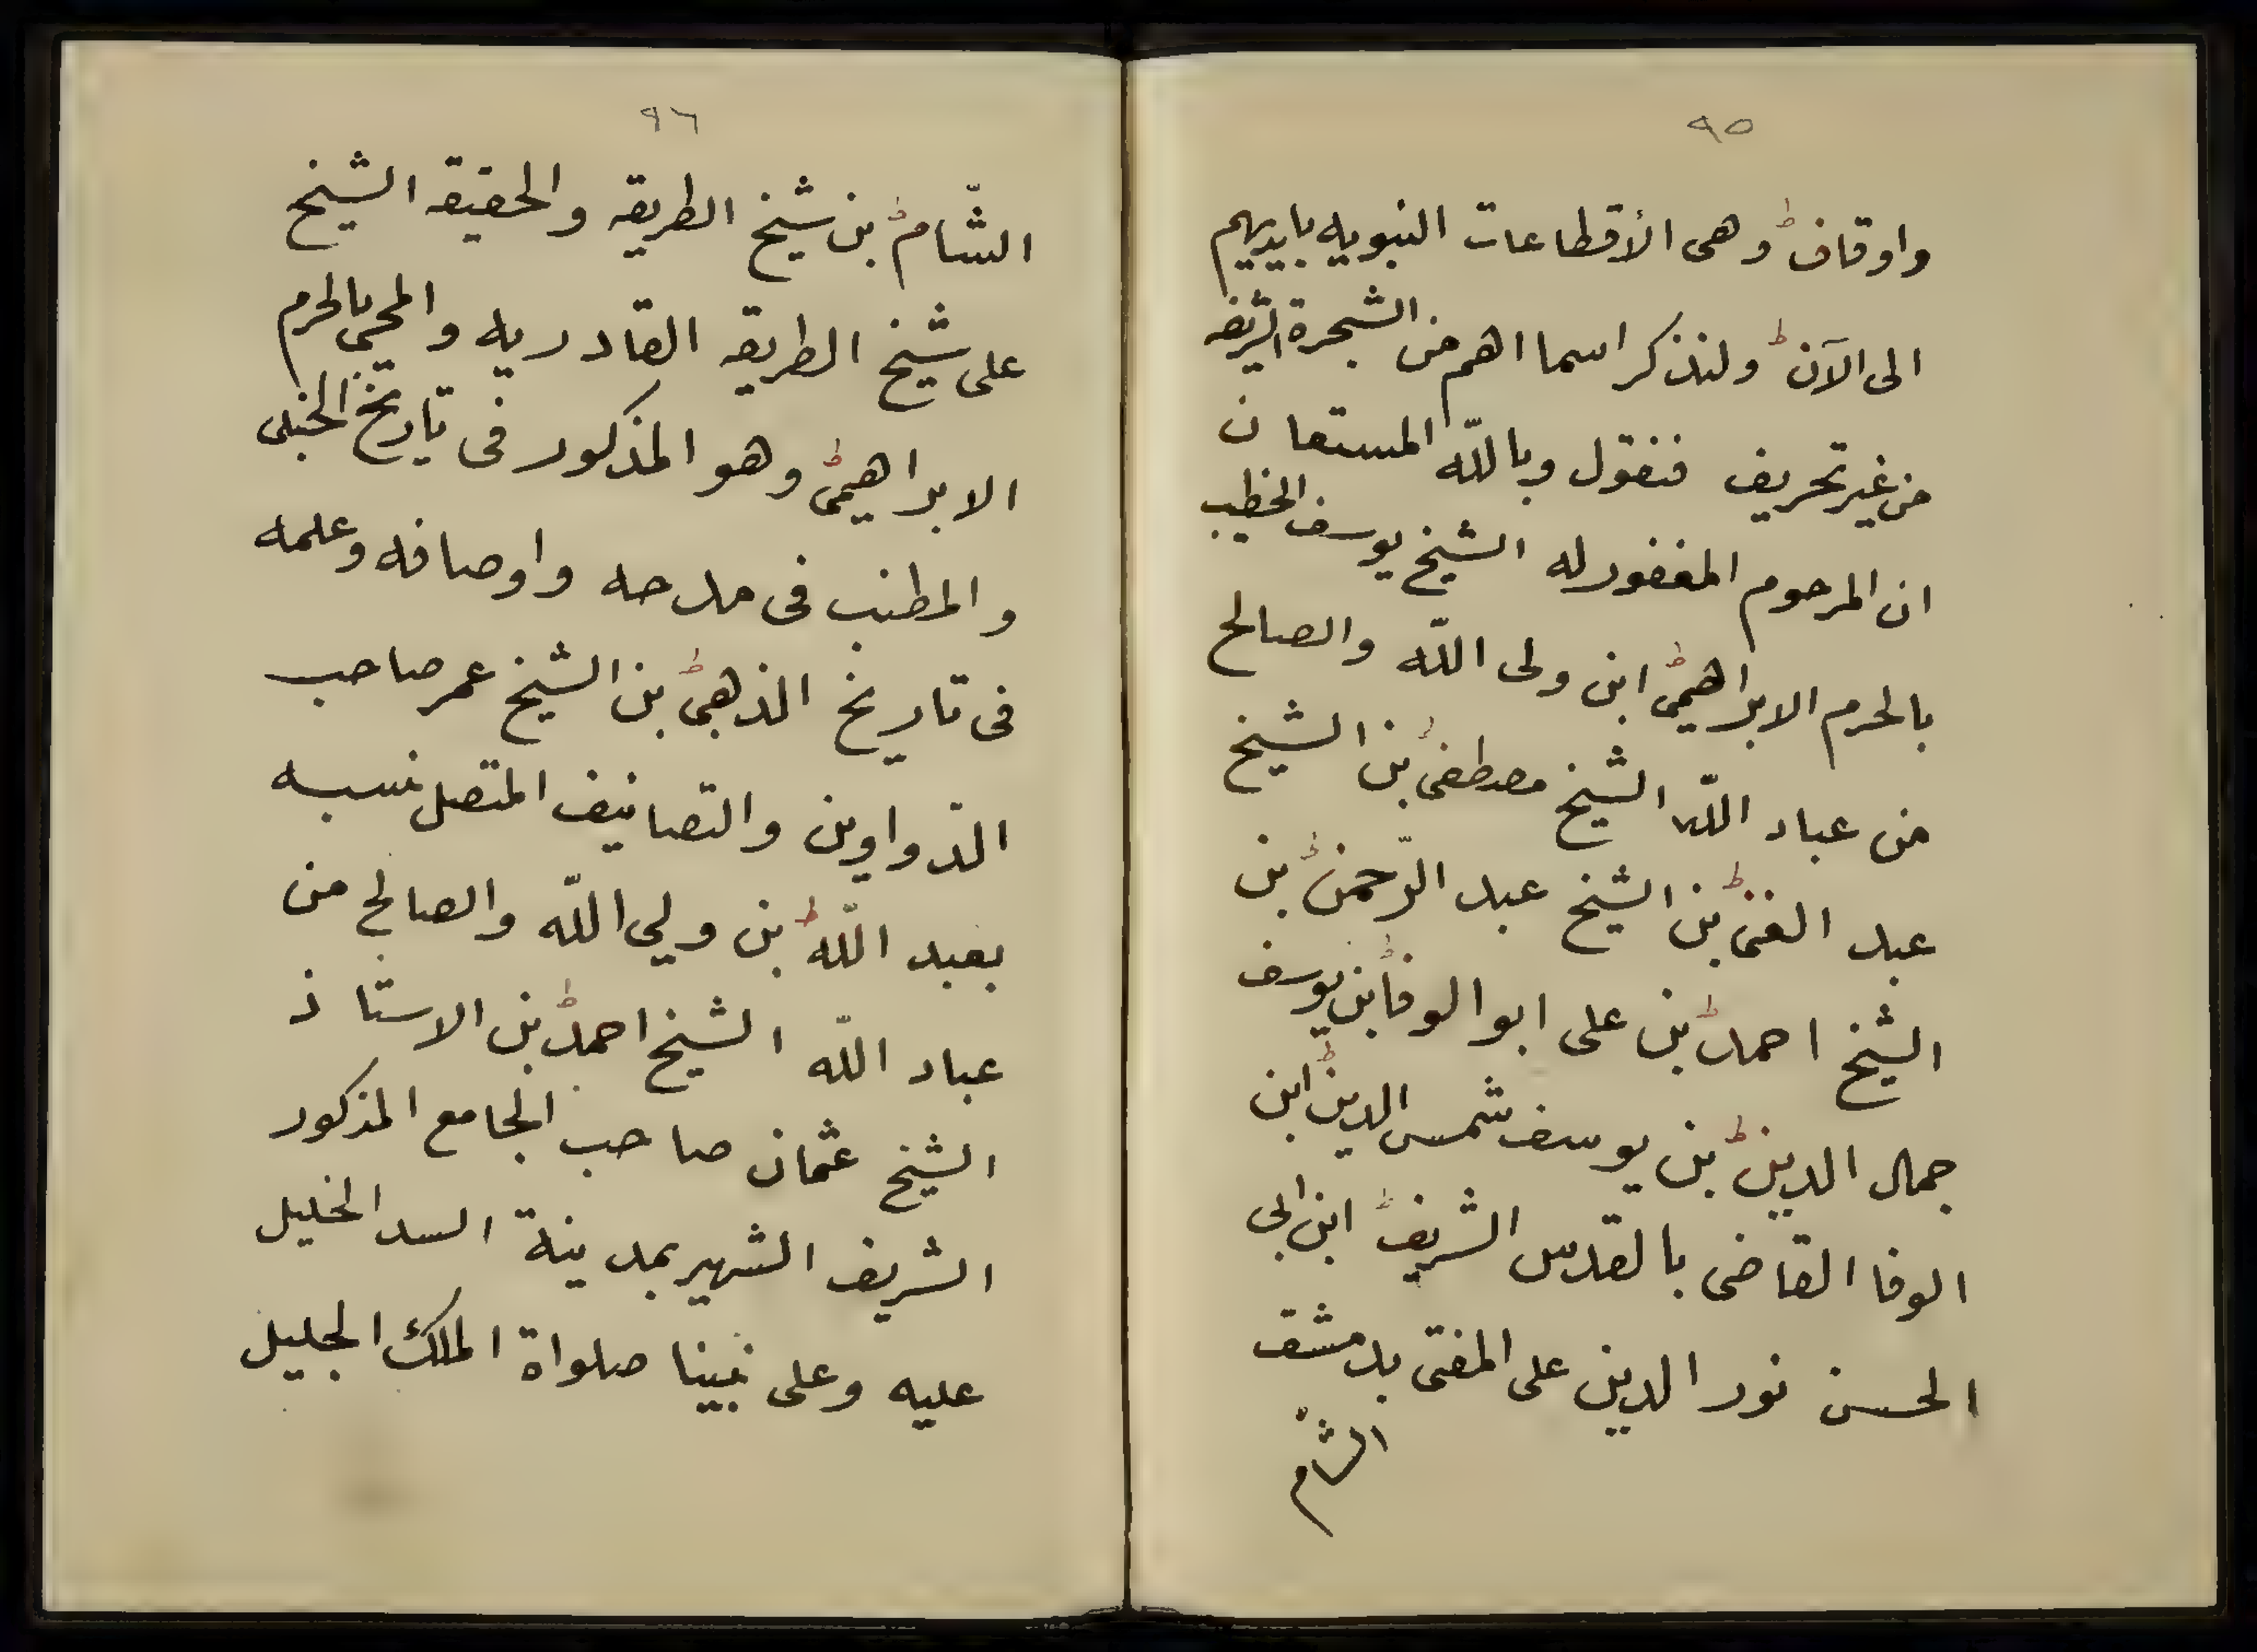 ٩٥
واوقاف وهى الأقطاعات النبويه بايديهم
الى الآن ولنذكر اسمااهم من الشجرة الشريفه
من غير تحريف فنقول وبالله المستعان
ان المرحوم المغفور له الشيخ يوسف الخطيب
بالحرم الابراهيمى ابن ولى الله والصالح
من عباد الله الشيخ مصطفى بن الشيخ
عبد الغنى بن الشيخ عبد الرّحمن بن
الشيخ احمد بن على ابو الوفا بن يوسف
جمال الدين بن يوسف شمس الدين ابن
الوفا القاضى بالقدس الشريف ابن ابى
الحسن نور الدين على المفتى بدمشق
الشام
٩٦
الشّام بن شيخ الطريقه والحقيقه الشيخ
على شيخ الطريقه القادريه والمحيى بالحرم
الابراهيمى وهو المذكور فى تاريخ الحنبلى
والمطنب فى مدحه واوصافه وعلمه
فى تاريخ الذهبى بن الشيخ عمر صاحب
الدّواوين والتصانيف المتصل نسبه
بعبد اللّه بن ولي اللّه والصالح من
عباد اللّه الشيخ احمد بن الاستاذ
الشيخ عثمان صاحب الجامع المذكور
الشريف الشهير بمدينة السد الخليل
عليه وعلى نبينا صلواة الملك الجليل